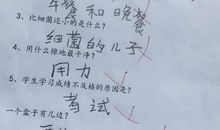 午餐和晚餐
3、比细菌还小的是什么?
细菌的儿子
4、用什么擦地最干净?
用力
5、学生学习成绩不及格的原因是?
考试
一个盒子有几边?